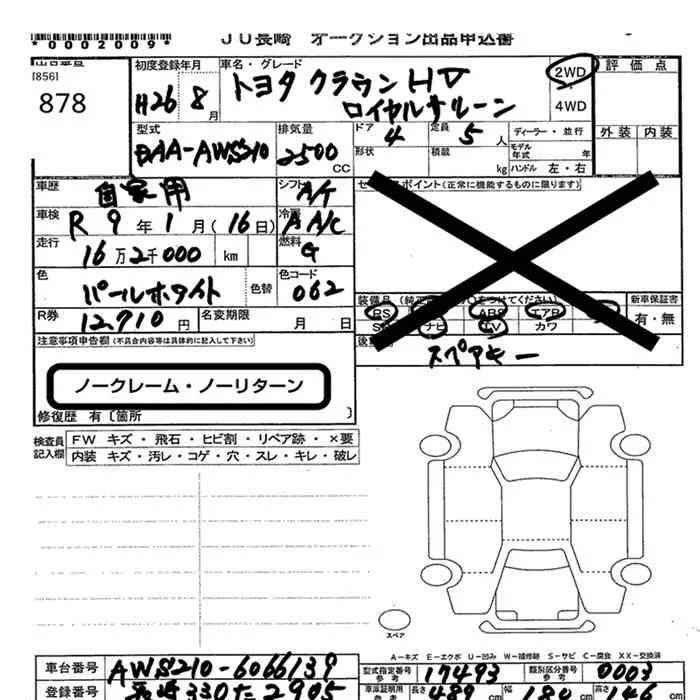 *0002009*
JU長崎 オークション出品申込書
[856]
878
初度登録年月
H26 8月
車名・グレード
トヨタ クラウン HV
ロイヤルサルーン
2WD
・
4WD
評価点
外装 内装
型式
DAA-AWS210
排気量
2500 CC
ドア 4
形状
定員 5人
積載 kg
ディーラー・並行
モデル年式 年
ハンドル 左・右
車歴 自家用
シフト A/T
車検 R 9年1月(16日)
冷房 A A/C
走行 16万2千000 km
燃料 G
色 パールホワイト 色替
色コード 062
R券 12,710円
名変期限 月 日
新車保証書
有・無
PS
ABS
エアB
ナビ
TV
カワ
スペアキー
注意事項申告欄(不具合内容等は具体的に記入して下さい)
ノークレーム・ノーリターン
修復歴 有〔箇所 〕
検査員記入欄
FW キズ・飛石・ヒビ割・リペア跡・×要
内装 キズ・汚レ・コゲ・穴・スレ・キレ・破レ
スペア
A-キズ E-エクボ U-凹み W-補修跡 S-サビ C-腐食 XX-交換済
車台番号 AWS210-6066139
型式指定番号 参考 17493
類別区分番号 参考 0003
登録番号 長崎330た2905
長さ 489
幅
高さ 146